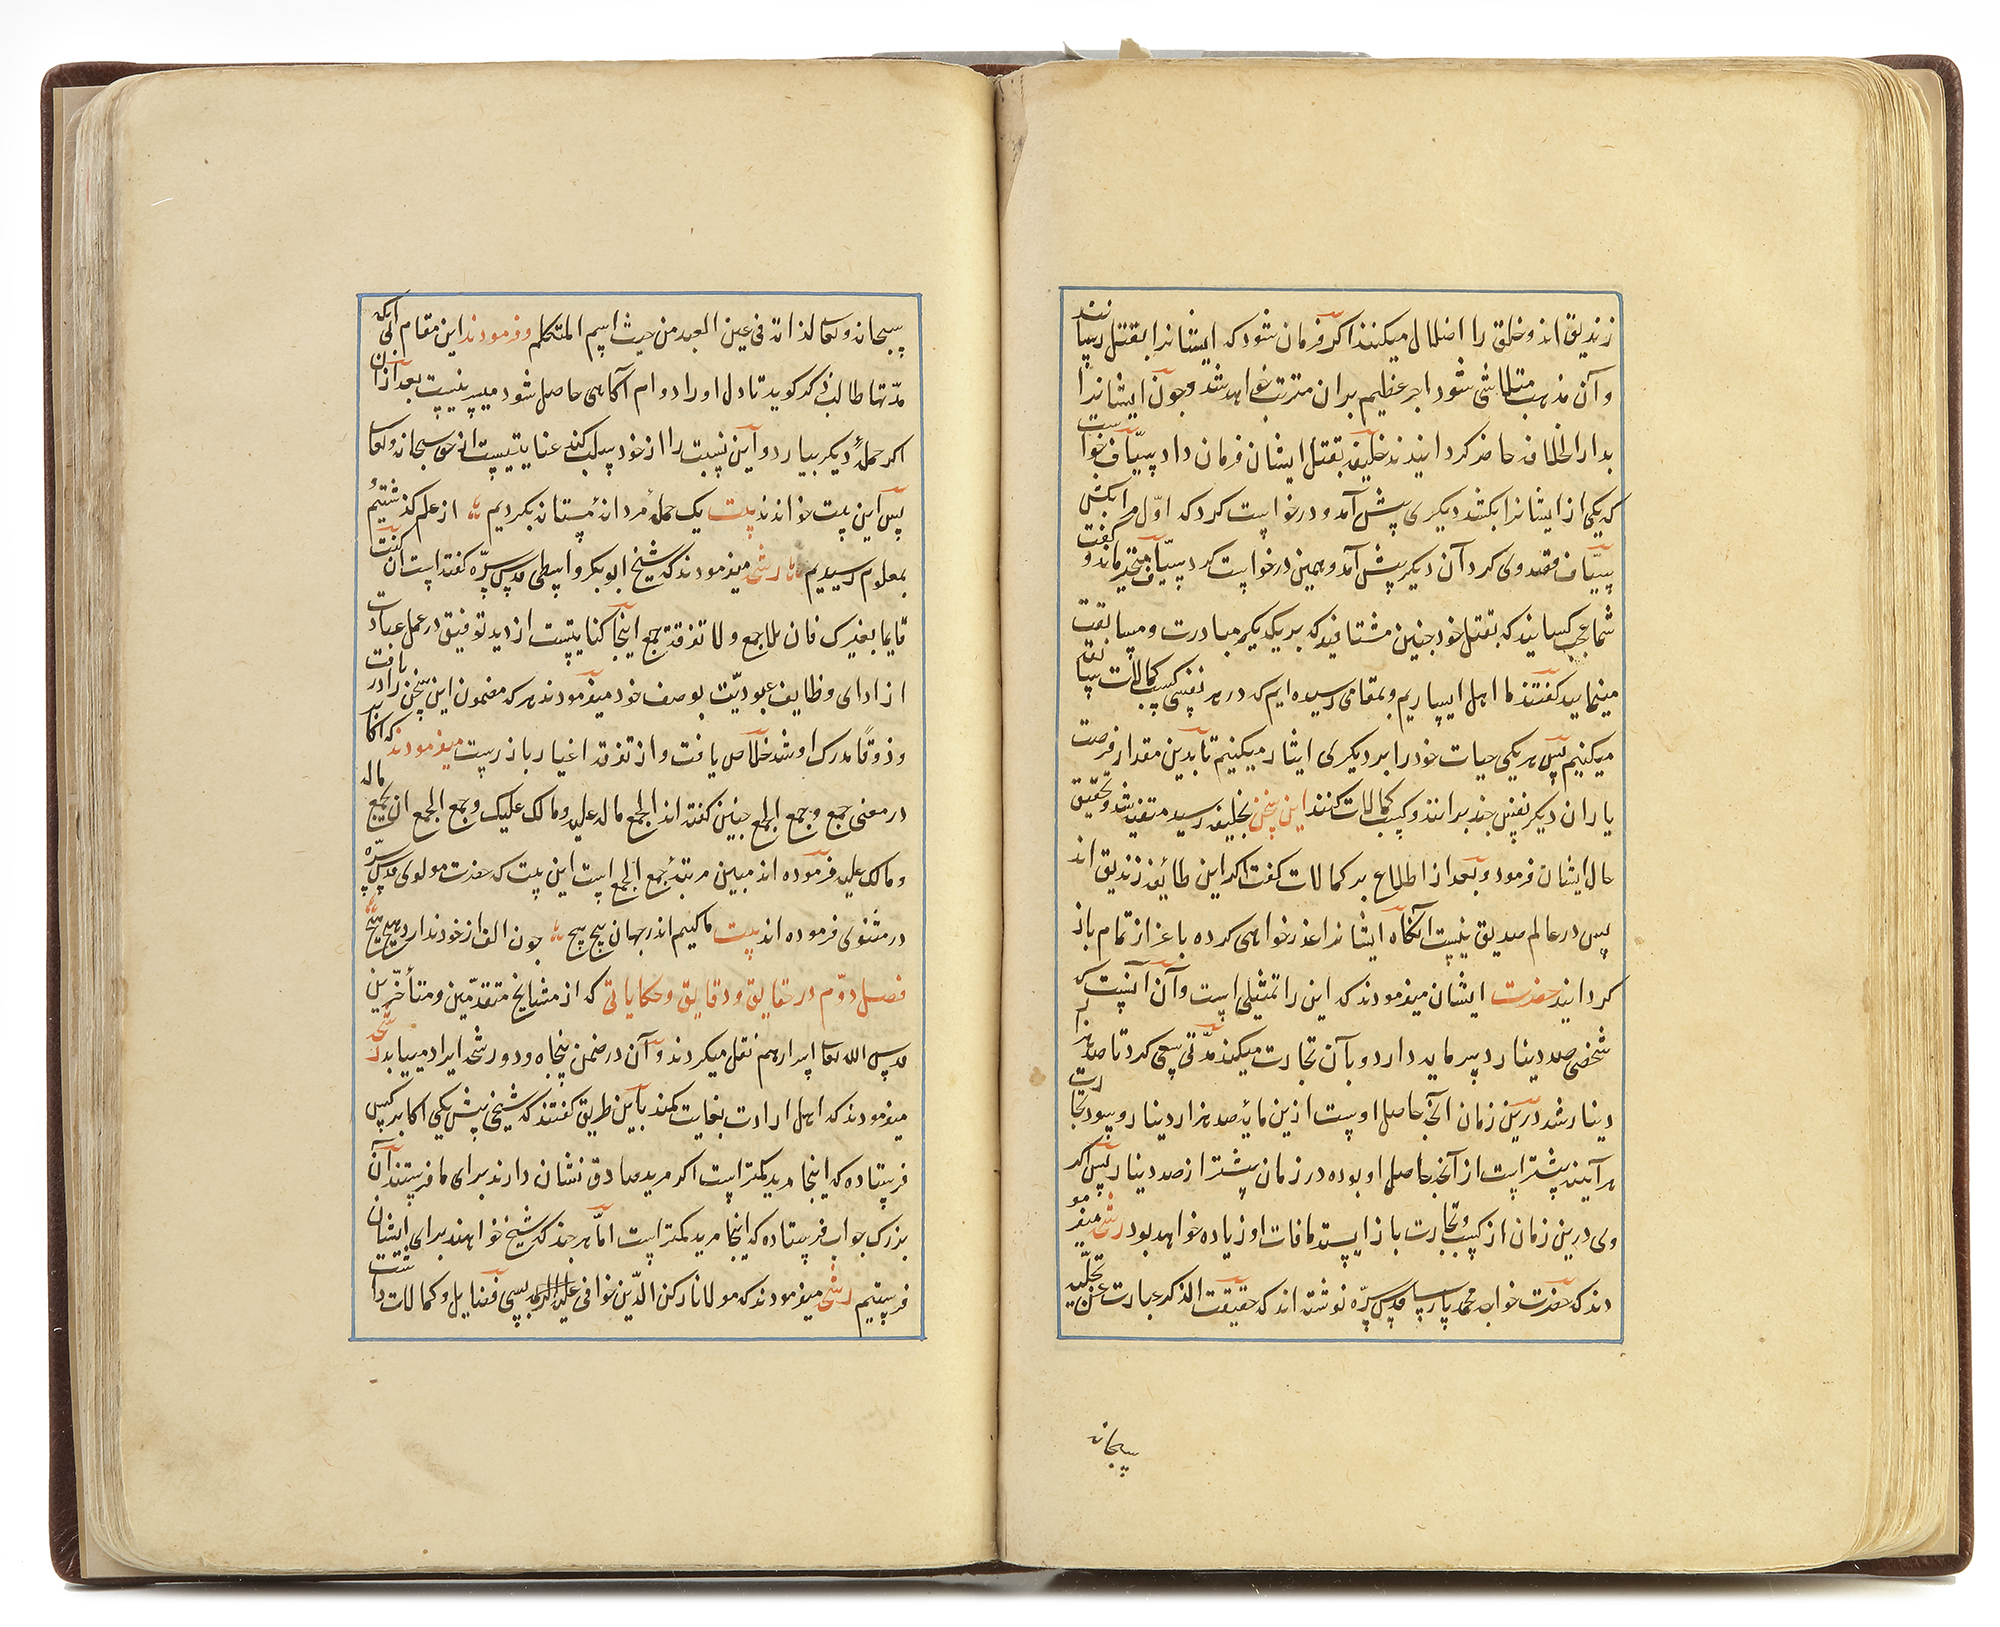 زندیق اند و خلق را اضلال میکنند اکر فرمان شود که ایشانرا بقتل رسانند
و آن مذهب متلاشی شود اجر عظیم بران مترتب خواهد شد و چون ایشانرا
بدار الخلافه حاضر کردانیدند خلیفه بقتل ایشان فرمان داد سیّاف خواست
که یکی از ایشانرا بکشد دیکری پیش آمد و درخواست کرد که اوّل مرا بکش
سیّاف قصد وی کرد آن دیکر پیش آمد و همین درخواست کرد سیّاف متحیر ماند و کفت
شما عجب کسانید که بقتل خود چنین مشتاقید که بر یکدیکر مبادرت و مسابقت
مینمایید کفتند ما اهل ایثاریم و بمقامی رسیده ایم که در هر نفسی کسب کمالات بینهایت
میکنیم پس هر یکی حیات خود را بر دیکری ایثار میکنیم تا بدین مقدار فرصت
یاران دیکر نفس چند برانند و کسب کمالات کنند این سخن بخلیفه رسید متغیر شد و تحقیق
حال ایشان فرمود و بعد از اطلاع بر کمالات کفت اکر این طائفه زندیق اند
پس در عالم صدیق نیست آنکاه ایشانرا عذر خواهی کرده باعزاز تمام باز
کردانید حضرت ایشان میفرمودند که این را تمثیلی است و آن آنست که
شخصی صد دینار سرمایه دارد و بآن تجارت میکند مدّتی سعی کرد تا صد هزار
دینار شد درین زمان آنچه حاصل اوست ازین مایهٔ صد هزار دینار و سود تجارت
هر آینه بیشتر است از آنچه حاصل او بوده در زمان پیشتر از صد دینار پس اکر
وی درین زمان از کسب و تجارت باز ایستد مافات او زیاده خواهد بود رشحه میفرمو
دند که حضرت خواجه محمد پارسا قدس سرّه نوشته اند که حقیقت الذکر عبارت عن تجلّیه
سبحانه
سبحانه و تعالی لذاته فی عین العبد من حیث اسم المتکلم و فرمودند این مقام کی
مدّتها طالب ذکر کوید تا دل او را دوام آکاهی حاصل شود میسر نیست بعد از آن
اکر حملهٔ دیکر بیارد و این نسبت را از خود سلب کند عنایتیست از حق سبحانه و تعالی
پس این بیت خواندند بیت یک حملهٔ مردانهٔ مستانه بکردیم از علم کذشتیم
بمعلوم رسیدیم رشحه میفرمودند که شیخ ابو بکر واسطی قدس سرّه کفته است ان کنت
قایما بغیرک فان بلا جمع و لا تفرقة جمع اینجا کنایتست از دید توفیق در عمل عبادت
از ادای وظایف عبودیّت بوصف خود میفرمودند هر که مضمون این سخن را دریافت
و ذوقًا مدرک او شد خلاص یافت و از تفرقه اغیار باز رست میفرمودند که اکابر
در معنی جمع و جمع الجمع چنین کفته اند الجمع ماله علیه و مالک علیک و جمع الجمع ان یجمع ماله
و مالک علیه فرموده اند مبین مرتبهٔ جمع الجمع است این بیت که حضرت مولوی قدس سرّه
در مثنوی فرموده اند بیت ما کییم اندر جهان پیچ پیچ چون الف از خود ندارد هیچ هیچ
فصل دوّم در حقایق و دقایق و حکایاتی که از مشایخ متقدّمین و متأخّرین
قدس الله تعالی اسرارهم نقل میکردند و آن در ضمن پنجاه و دو رشحه ایراد مییابد رشحه
میفرمودند که اهل ارادت بغایت کمند باین طریق کفتند که شیخی پیش یکی اکابر کس
فرستاده که اینجا مرید کمتر است اکر مرید صادق نشان دارند برای ما فرستند آن
بزرک جواب فرستاده که اینجا مرید کمتر است امّا هر چند که شیخ خواهند برای ایشان
فرستیم رشحه میفرمودند که مولانا رکن الدّین خوافی علیه الرحمه بسی فضایل و کمالات داشت